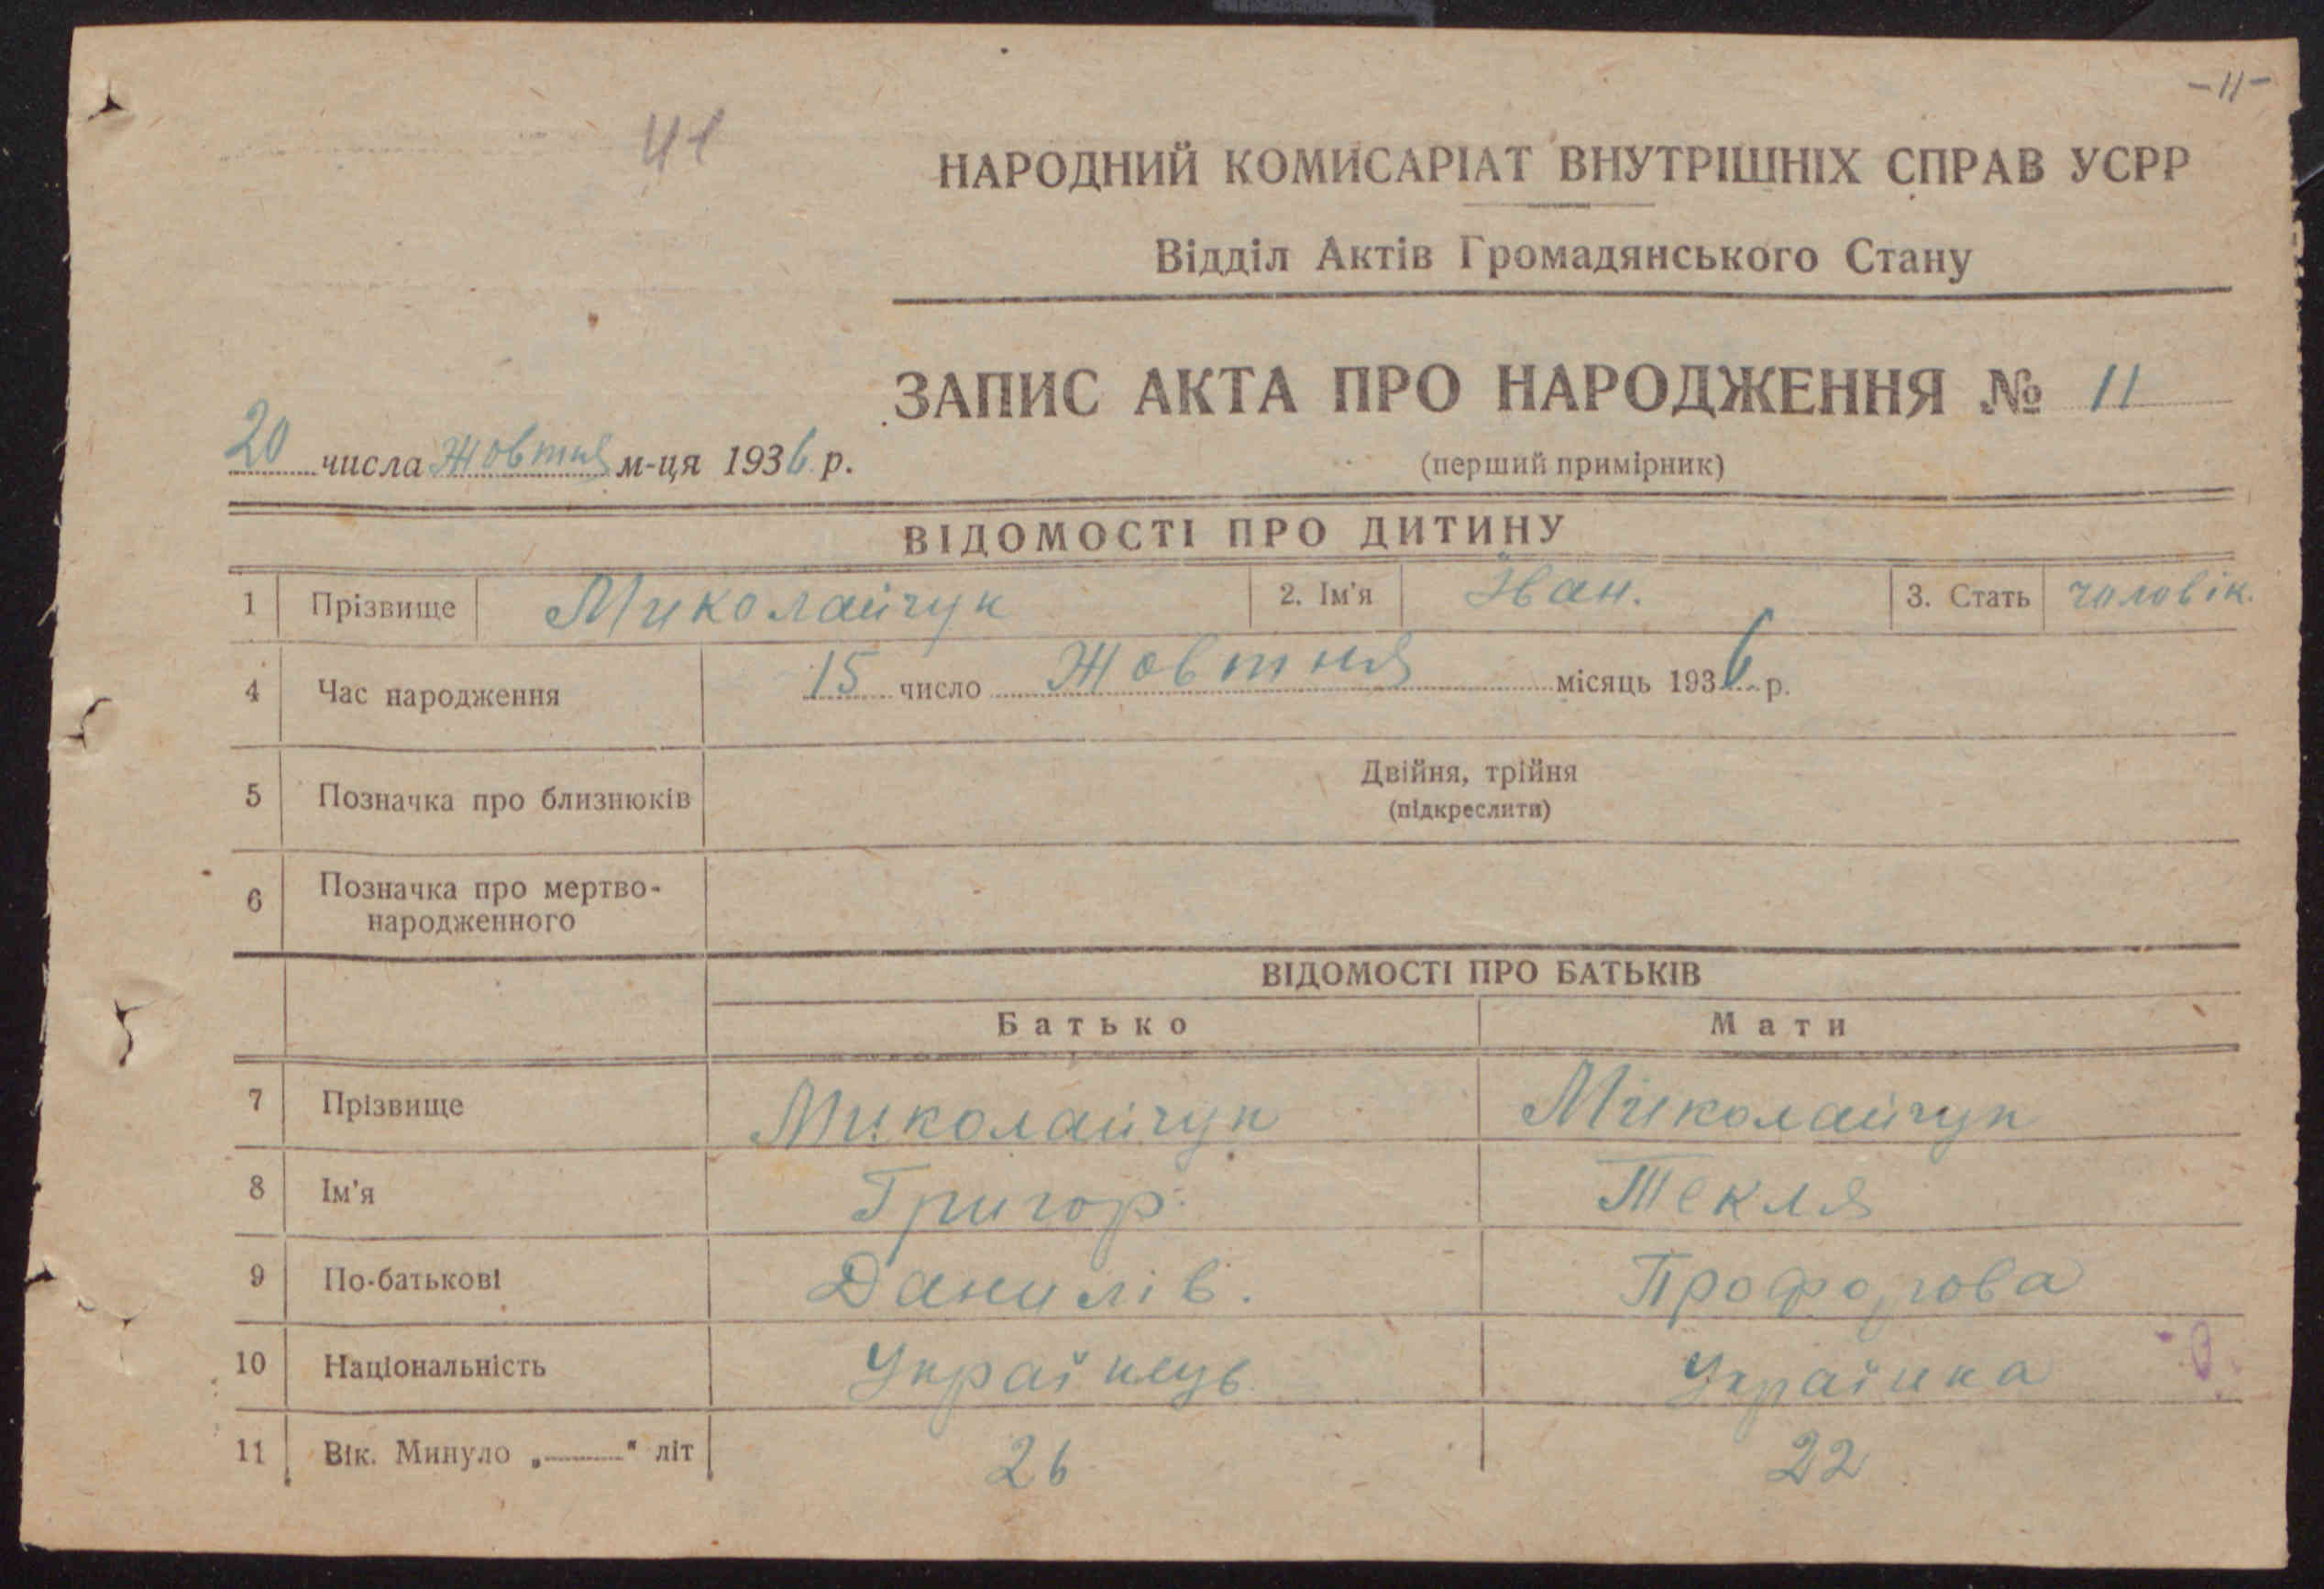 -11-
41
НАРОДНИЙ КОМИСАРІАТ ВНУТРІШНІХ СПРАВ УСРР
Відділ Актів Громадянського Стану
ЗАПИС АКТА ПРО НАРОДЖЕННЯ № 11
20 числа Жовтня м-ця 1936 р.
(перший примірник)
ВІДОМОСТІ ПРО ДИТИНУ
1 Прізвище Миколайчук 2. Ім'я Іван. 3. Стать чоловік.
4 Час народження 15 число Жовтня місяць 1936 р.
Двійня, трійня
5 Позначка про близнюків
(підкреслити)
6 Позначка про мертво-
народженного
ВІДОМОСТІ ПРО БАТЬКІВ
Батько Мати
7 Прізвище Миколайчук Миколайчук
8 Ім'я Григор. Текля
9 По-батькові Данилів.
10 Національність Українець Українка
11 Вік. Минуло „———" літ 26 22